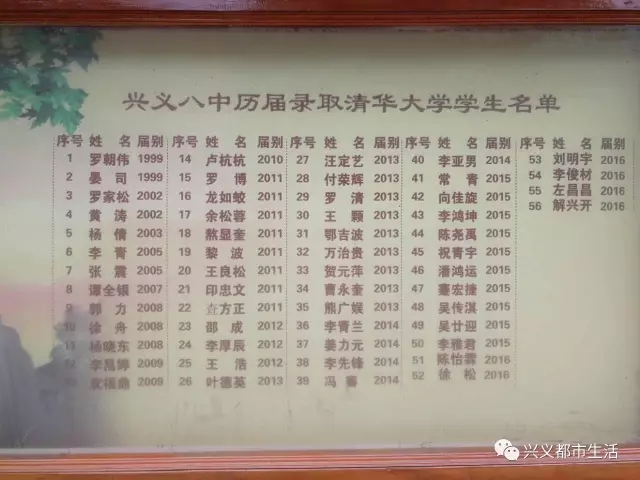 兴义八中历届录取清华大学学生名单
序号 姓 名 届别 序号 姓 名 届别 序号 姓 名 届别 序号 姓 名 届别 53 刘明宇 2016
1 罗朝伟 1999 14 卢杭杭 2010 27 汪定艺 2013 40 李亚男 2014 54 李俊材 2016
2 晏 司 1999 15 罗 博 2011 28 付荣辉 2013 41 常 青 2015 55 左昌昌 2016
3 罗家松 2002 16 龙如蛟 2011 29 罗 清 2013 42 向佳旋 2015 56 解兴开 2016
4 黄 涛 2002 17 余松蓉 2011 30 王 颗 2013 43 李鸿坤 2015
5 杨 倩 2003 18 熬显奎 2011 31 鄂吉波 2013 44 陈尧禹 2015
6 李 青 2005 19 黎 波 2011 32 万治贵 2013 45 祝青宇 2015
7 张 震 2005 20 王良松 2011 33 贺元萍 2013 46 潘鸿运 2015
8 谭全银 2007 21 印忠文 2011 34 曹永奎 2013 47 蹇宏捷 2015
9 郭 力 2008 22 方正 2011 35 熊广娱 2013 48 吴传淇 2015
10 徐 舟 2008 23 邵 成 2012 36 李青兰 2014 49 吴廿迎 2015
11 杨晓东 2008 24 李厚辰 2012 37 姜力元 2014 50 李雅君 2015
12 李昌婷 2009 25 王 浩 2012 38 李先锋 2014 51 陈怡霖 2016
2009 26 叶德英 2013 39 冯 睿 2014 52 徐 松 2016
兴义都市生活